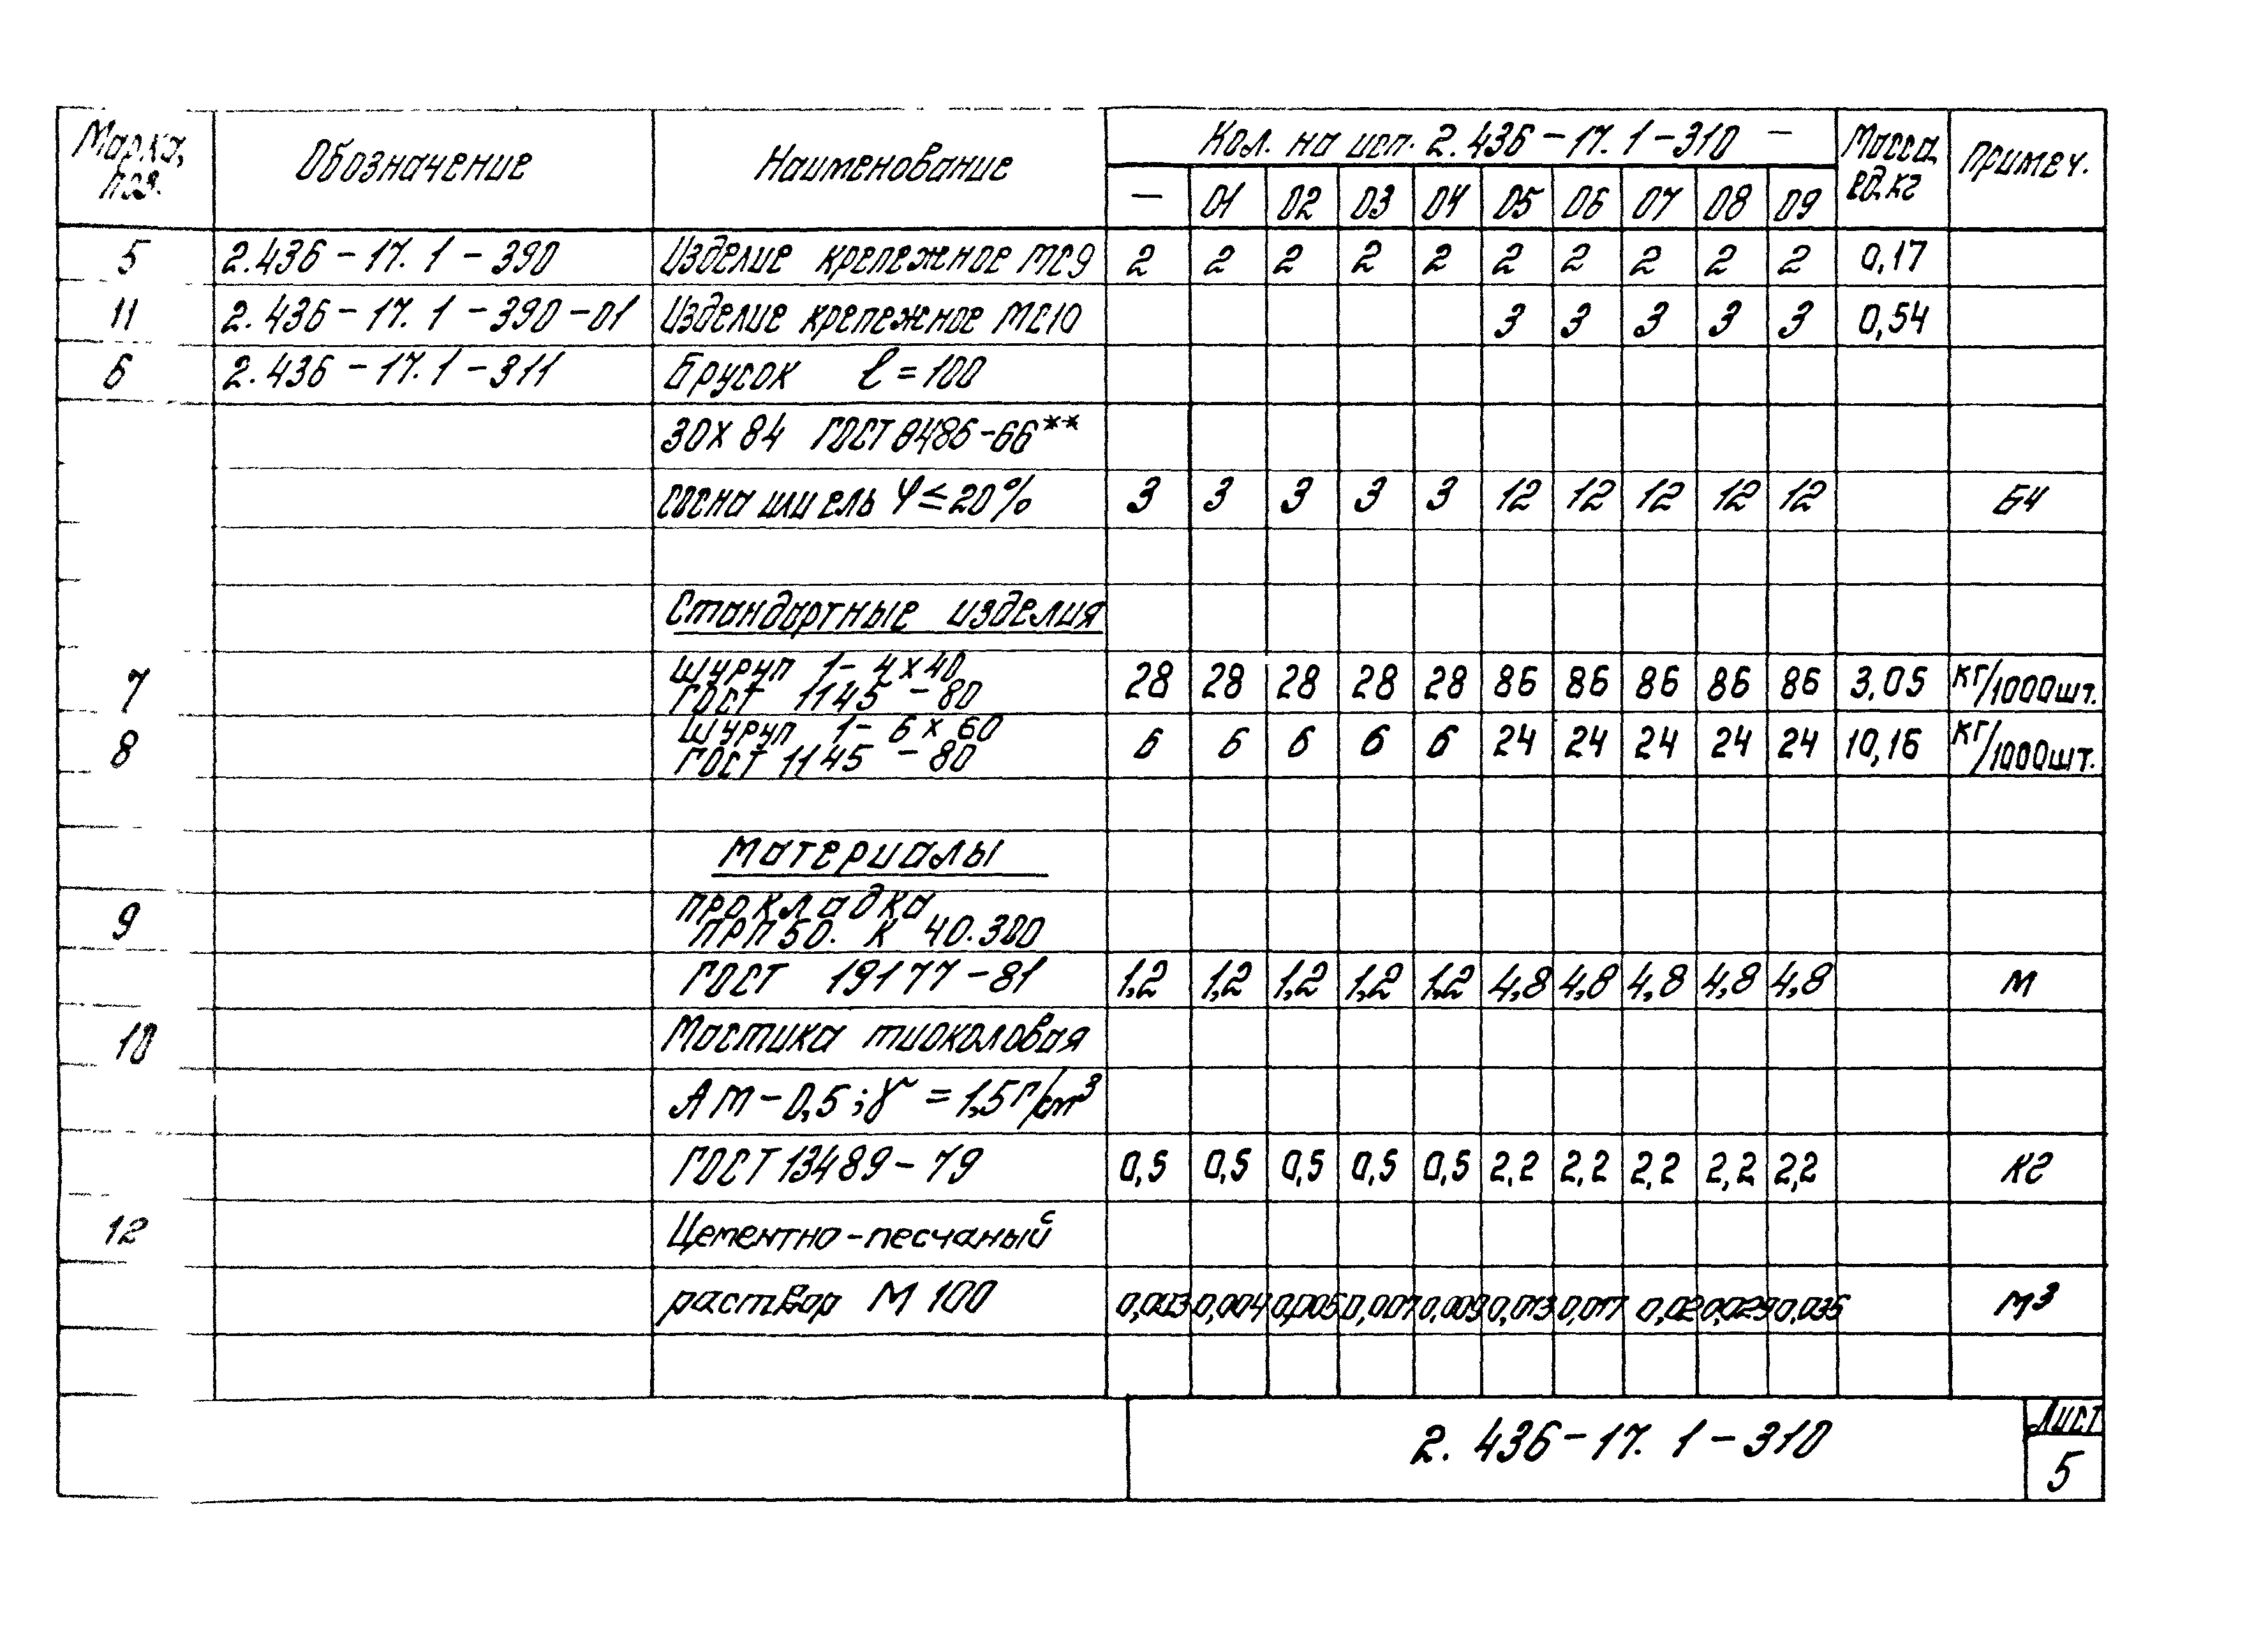 Марка, поз. Обозначение Наименование Кол. на исп. 2.436-17.1-310 — Масса ед. кг Примеч.
— 01 02 03 04 05 06 07 08 09
5 2.436-17.1-390 Изделие крепежное МС9 2 2 2 2 2 2 2 2 2 2 0,17
11 2.436-17.1-390-01 Изделие крепежное МС10 3 3 3 3 3 0,54
6 2.436-17.1-311 Брусок ℓ=100
30х84 ГОСТ 8486-66**
сосна или ель φ≤20% 3 3 3 3 3 12 12 12 12 12 БЧ
Стандартные изделия
7 Шуруп 1-4х40
ГОСТ 1145-80 28 28 28 28 28 86 86 86 86 86 3,05 кг/1000шт.
8 Шуруп 1-6х60
ГОСТ 1145-80 6 6 6 6 6 24 24 24 24 24 10,16 кг/1000шт.
Материалы
9 прокладка
ПРП 50. К 40.300
ГОСТ 19177-81 1,2 1,2 1,2 1,2 1,2 4,8 4,8 4,8 4,8 4,8 м
10 Мастика тиоколовая
АМ-0,5; γ = 1,5 г/cm³
ГОСТ 13489-79 0,5 0,5 0,5 0,5 0,5 2,2 2,2 2,2 2,2 2,2 кг
12 Цементно-песчаный
раствор М 100 0,003 0,004 0,005 0,007 0,009 0,013 0,017 0,02 0,029 0,035 м³
2.436-17.1-310 Лист
5